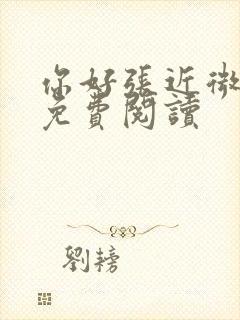 你好張近微
免費閱讀
劉榜